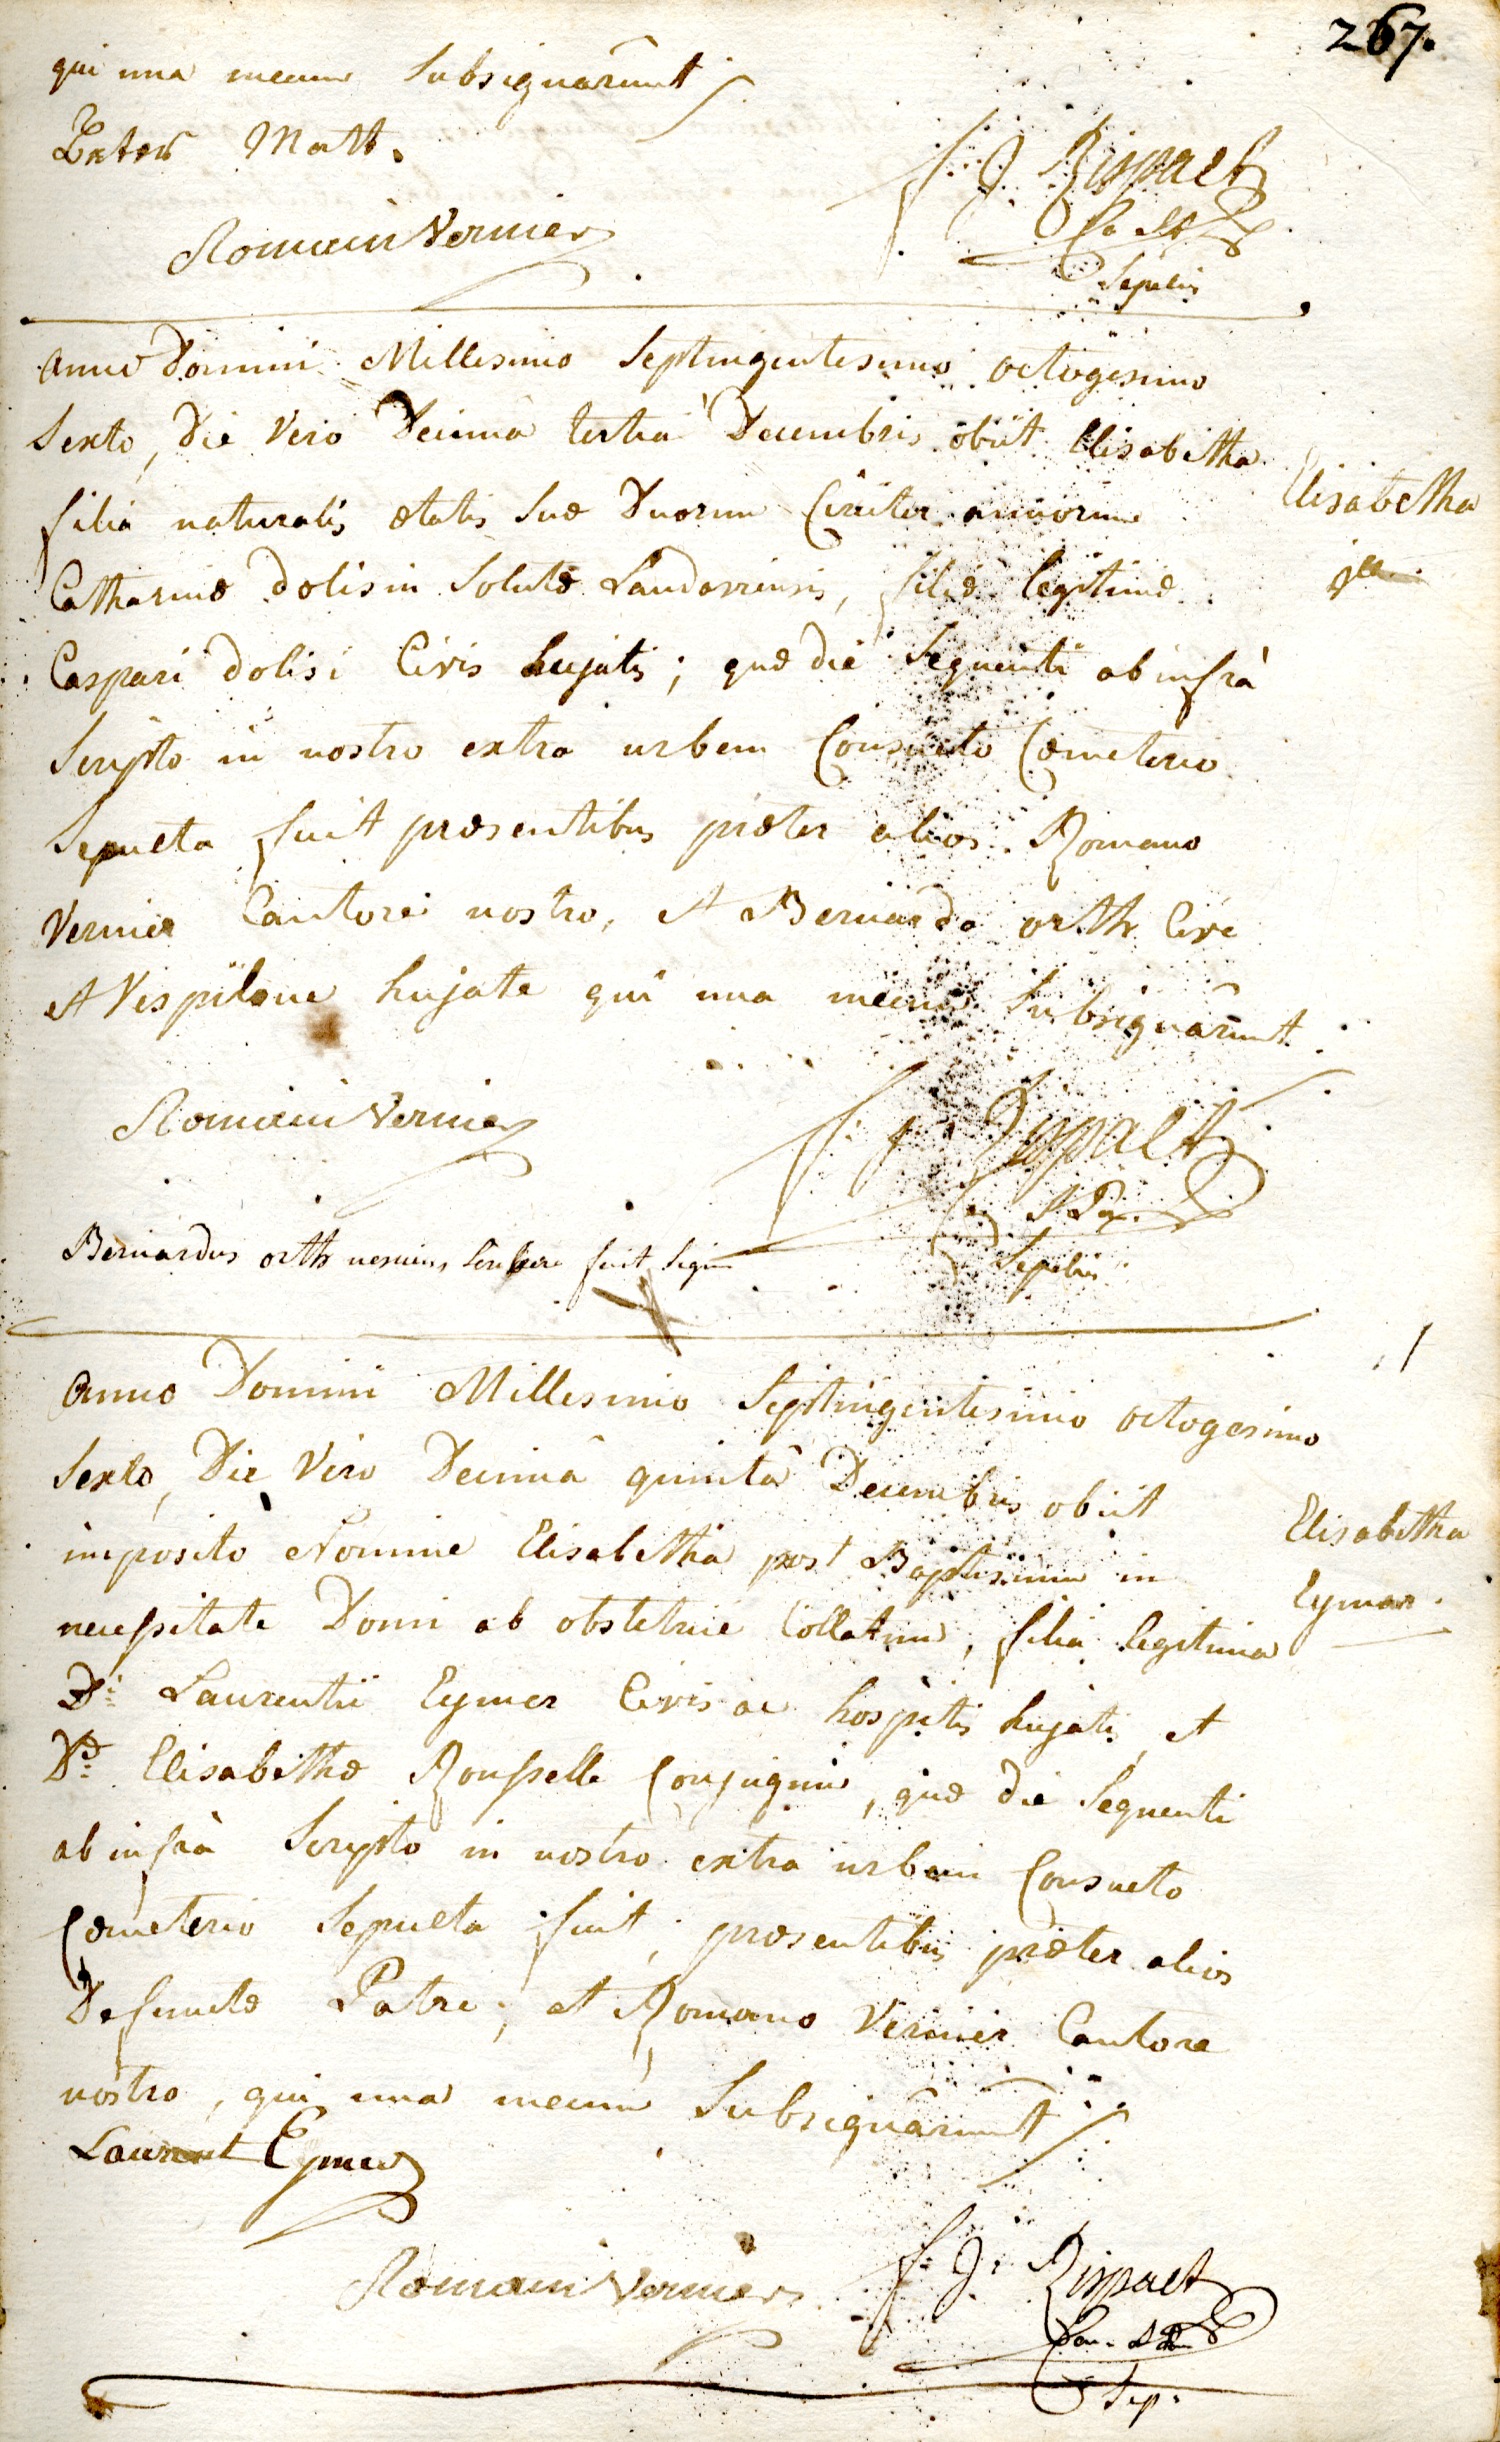 267.
qui una mecum subsignârunt
Matt.
f. J. Rispaelt
Romain Vernier
Sepelivi
Anno Domini Millesimo Septingentesimo octogesimo
Sexto, Die Vero Decimâ tertiâ Decembris obiit Elisabetha
filia naturalis ætatis suæ Duorum Circiter annorum
Catharinæ dolisin Solutæ Landaviensis, filiæ legitimæ
Caspari dolisi Civis hujatis; quæ die Sequenti ab infrà
Scripto in nostro extra urbem Consueto Cœmeterio
Sepulta fuit præsentibus præter alios Romano
Vernier Cantore nostro, et Bernardo orth Cive
et Vespilone hujate qui una mecum Subsignârunt
Elisabetha
jlle.
Romain Vernier
f. J. Rispaelt
Sepelivi
Bernardus orth nesciens scribere fecit Signum
Anno Domini Millesimo Septingentesimo octogesimo
Sexto, Die Vero Decimâ quintâ Decembris obiit
imposito Nomine Elisabetha post Baptismum in
necessitate Domi ab obstetrice Collatum, filia legitima
Di. Laurentii Eymer Civis ac hospitis hujatis, et
Dæ. Elisabethæ Rousselle Conjugum, quæ die Sequenti
ab infrà Scripto in nostro extra urbem Consueto
Cœmeterio Sepulta fuit, præsentibus præter alios
Defunctæ Patre; et Romano Vernier Cantore
nostro, qui una mecum Subsignârunt
Elisabetha
Eymer.
Laurent Eymer
Romain Vernier
f. J. Rispaelt
Sep.